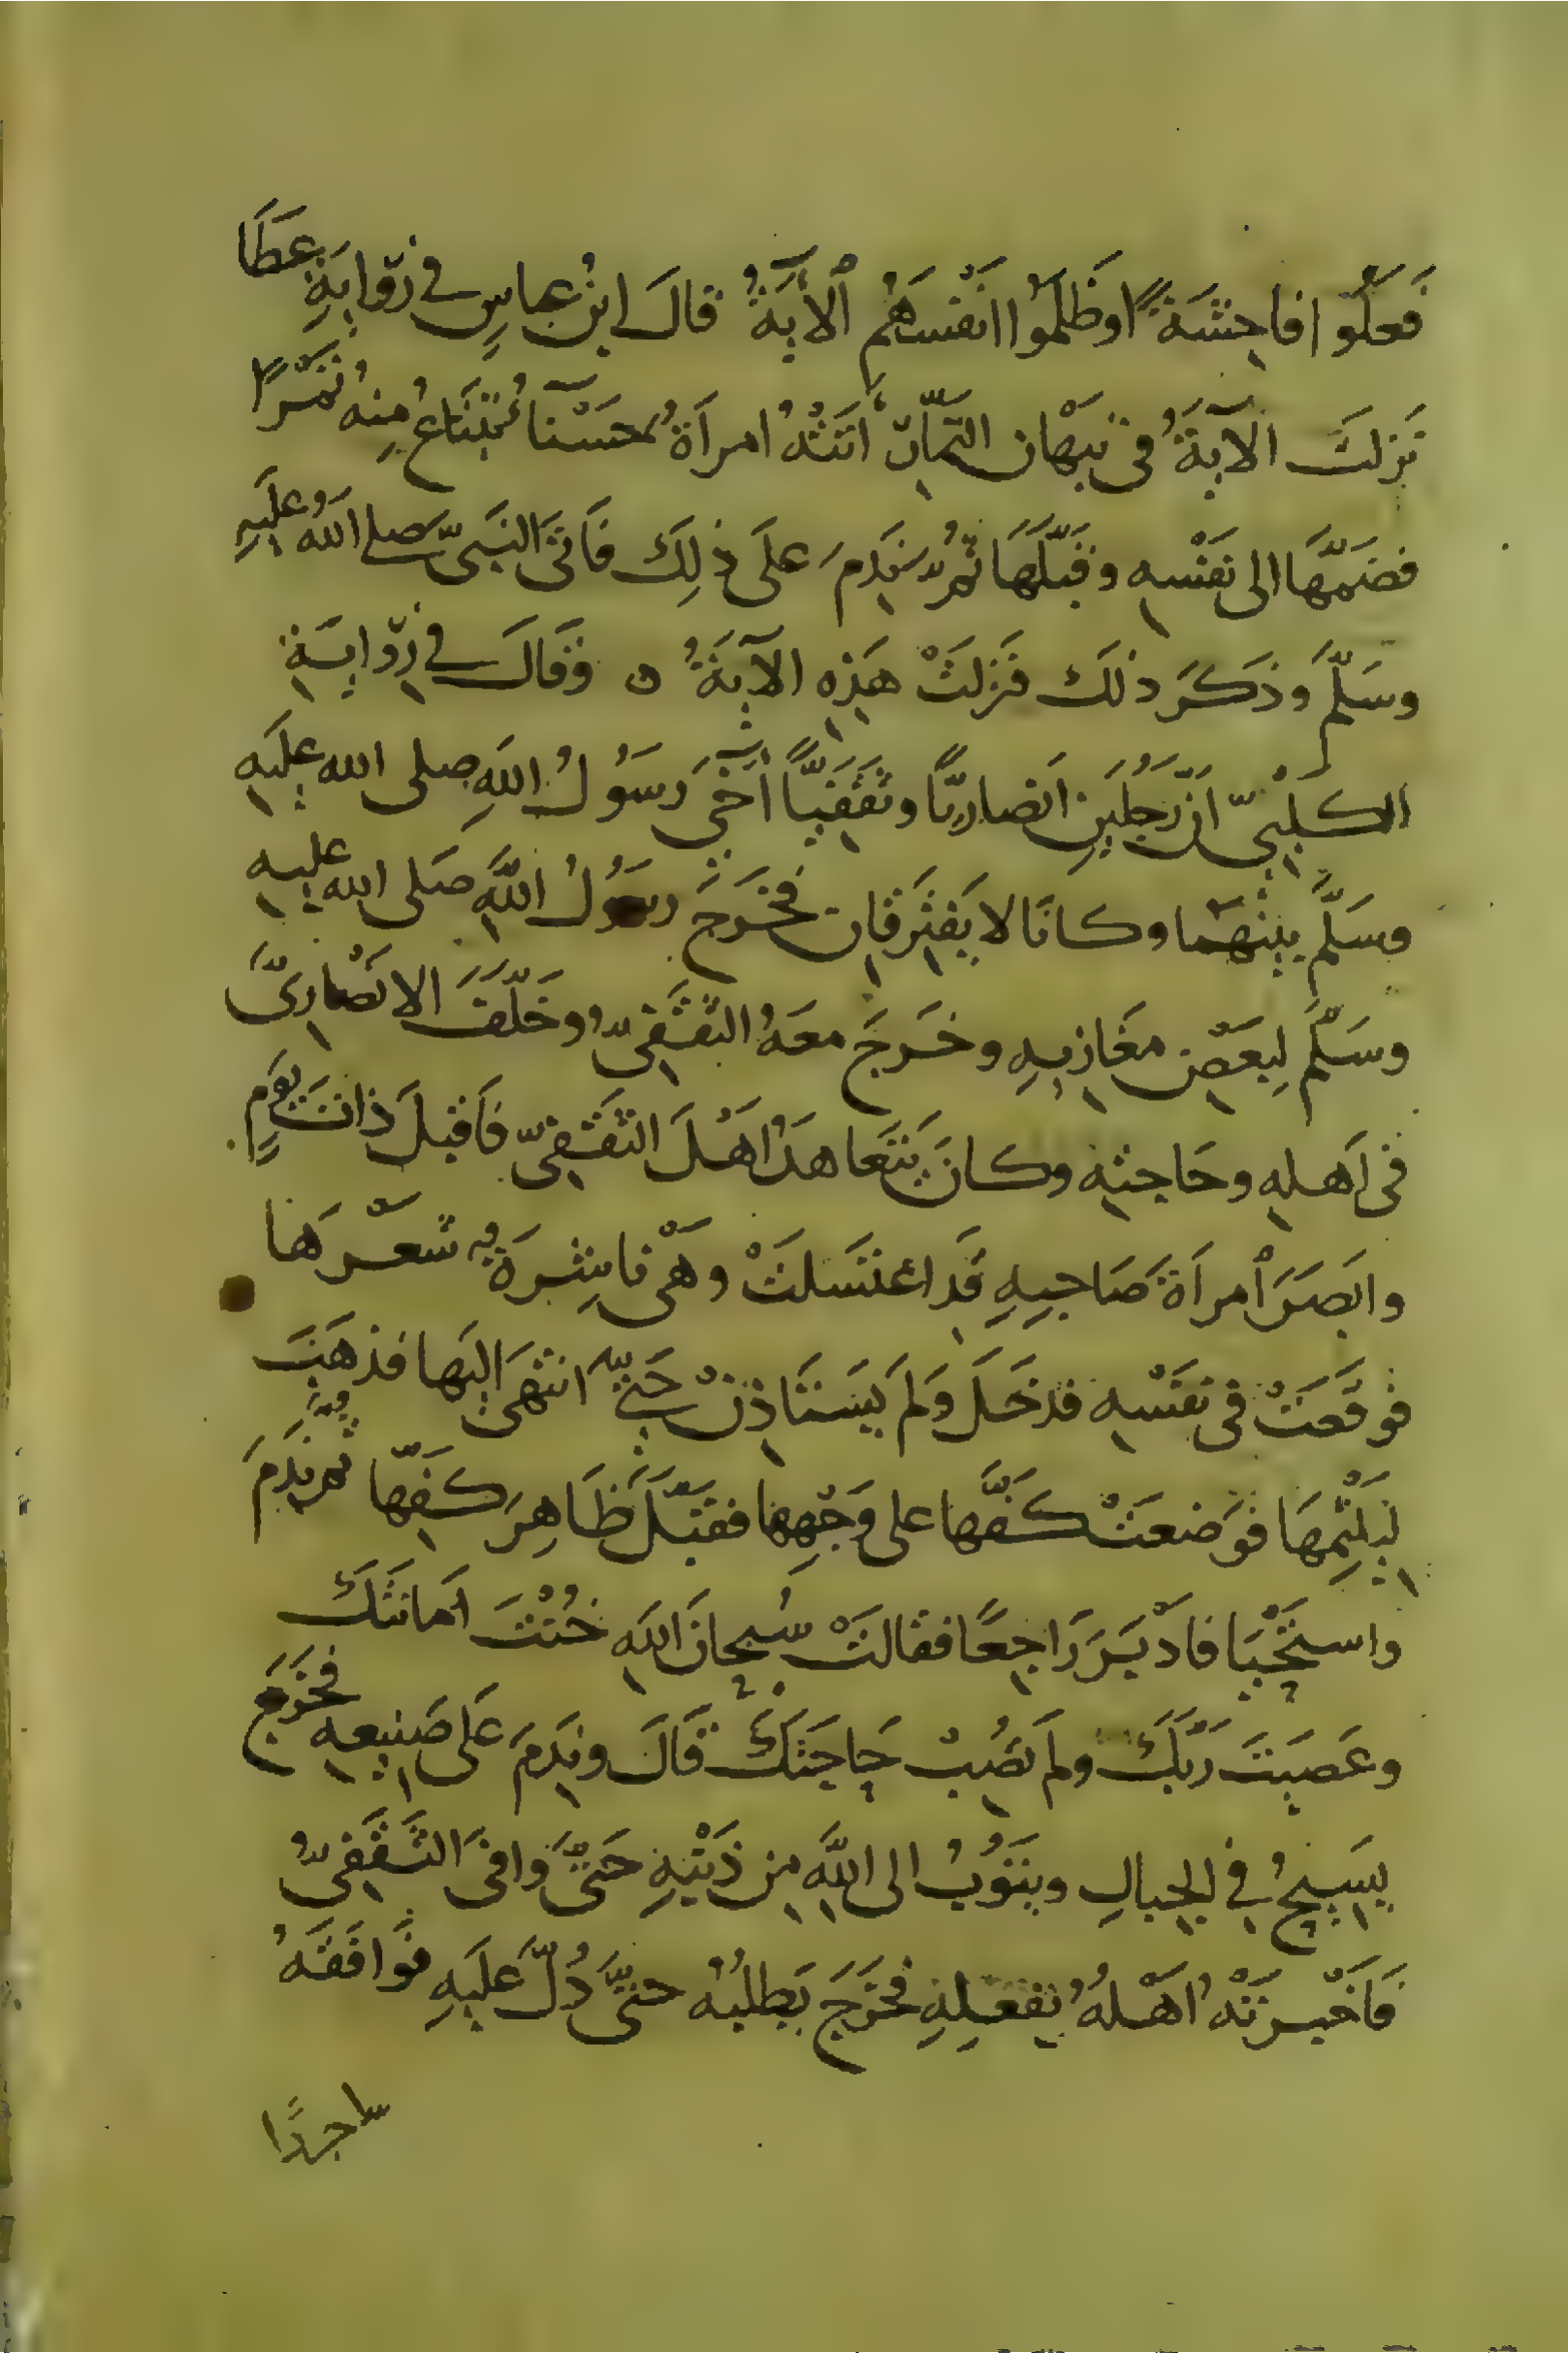 فَعَلُوا فاحِشَةً اوظَلَمُوا انْفُسَهُم الآيَةُ قالَ ابنُ عباسٍ في رِوايَةِ عطَا
نَزلَتَ الآيَةُ في نبهَان التمّارِ أتَتْهُ امرأةٌ حسْنَا تَبْتَاعُ مِنهُ تَمْرًا
فضَمَّهَا الى نَفْسِهِ وقَبَّلَهَا ثُمَّ نَدِمَ علَى ذلِكَ فَاتَى النَبيَّ صلى اللهُ عليَهِ
وسَلَّمَ وَذَكَرَ ذلَك فنَزلَتْ هَذِهِ الآيَةُ ه وَقَالَ في رِوايَةِ
الكَلْبِيّ انَّ رَجُلَيِن انَصاريًّا وثَقَفيًّا آخَى رَسُولُ اللهِ صلى الله عليَهِ
وسَلَّمَ بينهُمَا وكانَا لا يَفْتَرِقانِ فخَرَجَ رسُولُ اللَّهِ صَلى الله عليهِ
وسَلَّمَ لِبَعْضِ مغَازيهِ وخَرجَ معَهُ الثقَفِيُّ وخَلَّفَ الانْصارِيَّ
في اَهلِهِ وحَاجتِهِ وكانَ يَتَعاهدُ اهْلَ الثَقَفِيّ فَاقبلَ ذاتَ يَوَمٍ
وابَصَرَ امرأةَ صَاحِبِهِ قَدِ اغتسَلتْ وهْيَ ناشِرَةٌ شَعْرَهَا
فوقَعَتْ في نفْسِهِ فدخَلَ وَلَم يَستَاذِنْ حَتّى انتهَى اليَها فذهَبَ
لِيَلْثِمَهَا فوَضعَتْ كفَّها على وَجْهِها فقبَّلَ ظَاهِرَ كَفِّهَا ثم نَدِمَ
واستَحْيَا فادْبَرَ رَاجِعًا فقالتْ سُبحانَ اللهِ خُنْتَ اَمانَتَكَ
وعَصَيَتَ رَبَّكَ ولَم تُصِبْ حاجَتَكَ قَالَ ونَدِمَ عَلى صَنيعِهِ فخَرَجَ
يسَيحُ في الجبالِ ويَتُوبُ الى اللَّهِ مِن ذَنْبِهِ حَتَّى وَافىَ الثَّقَفِيُّ
فَاخْبرَتْهُ اهْلُهُ بفعلِهِ فخَرَجَ يَطلبُهُ حتىَّ دُلَّ عَليَهِ فَوَافَقَهُ
ساجدًا